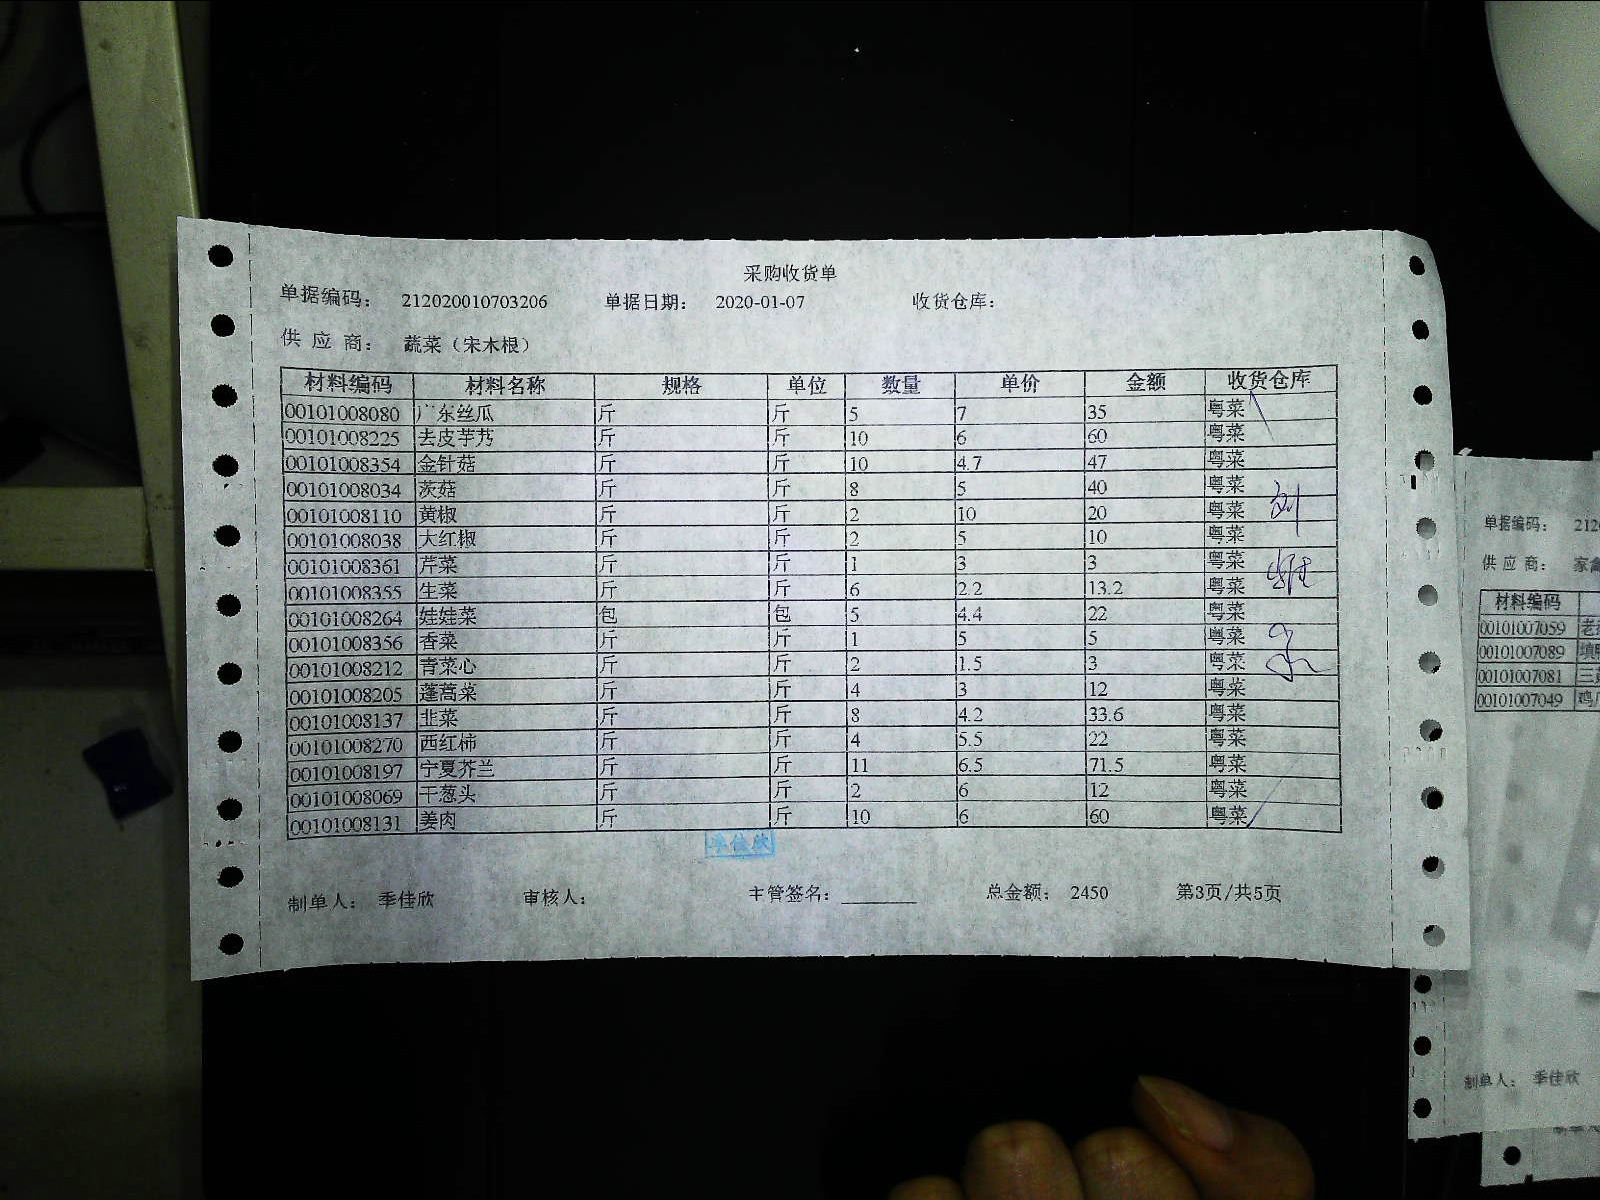 采购收货单
单据编码： 212020010703206 单据日期： 2020-01-07 收货仓库：
供 应 商： 蔬菜（宋木根）
材料编码 材料名称 规格 单位 数量 单价 金额 收货仓库
00101008080 广东丝瓜 斤 斤 5 7 35 粤菜
00101008225 去皮芋艿 斤 斤 10 6 60 粤菜
00101008354 金针菇 斤 斤 10 4.7 47 粤菜
00101008034 茨菇 斤 斤 8 5 40 粤菜
00101008110 黄椒 斤 斤 2 10 20 粤菜
00101008038 大红椒 斤 斤 2 5 10 粤菜
00101008361 芹菜 斤 斤 1 3 3 粤菜
00101008355 生菜 斤 斤 6 2.2 13.2 粤菜
00101008264 娃娃菜 包 包 5 4.4 22 粤菜
00101008356 香菜 斤 斤 1 5 5 粤菜
00101008212 青菜心 斤 斤 2 1.5 3 粤菜
00101008205 蓬蒿菜 斤 斤 4 3 12 粤菜
00101008137 韭菜 斤 斤 8 4.2 33.6 粤菜
00101008270 西红柿 斤 斤 4 5.5 22 粤菜
00101008197 宁夏芥兰 斤 斤 11 6.5 71.5 粤菜
00101008069 干葱头 斤 斤 2 6 12 粤菜
00101008131 姜肉 斤 斤 10 6 60 粤菜
季佳欣
制单人： 季佳欣 审核人： 主管签名： 总金额： 2450 第3页/共5页
单据编码： 212
供 应 商： 家禽
材料编码
00101007059 老
00101007089 填鸭
00101007081 三黄
00101007049 鸡
制单人： 季佳欣